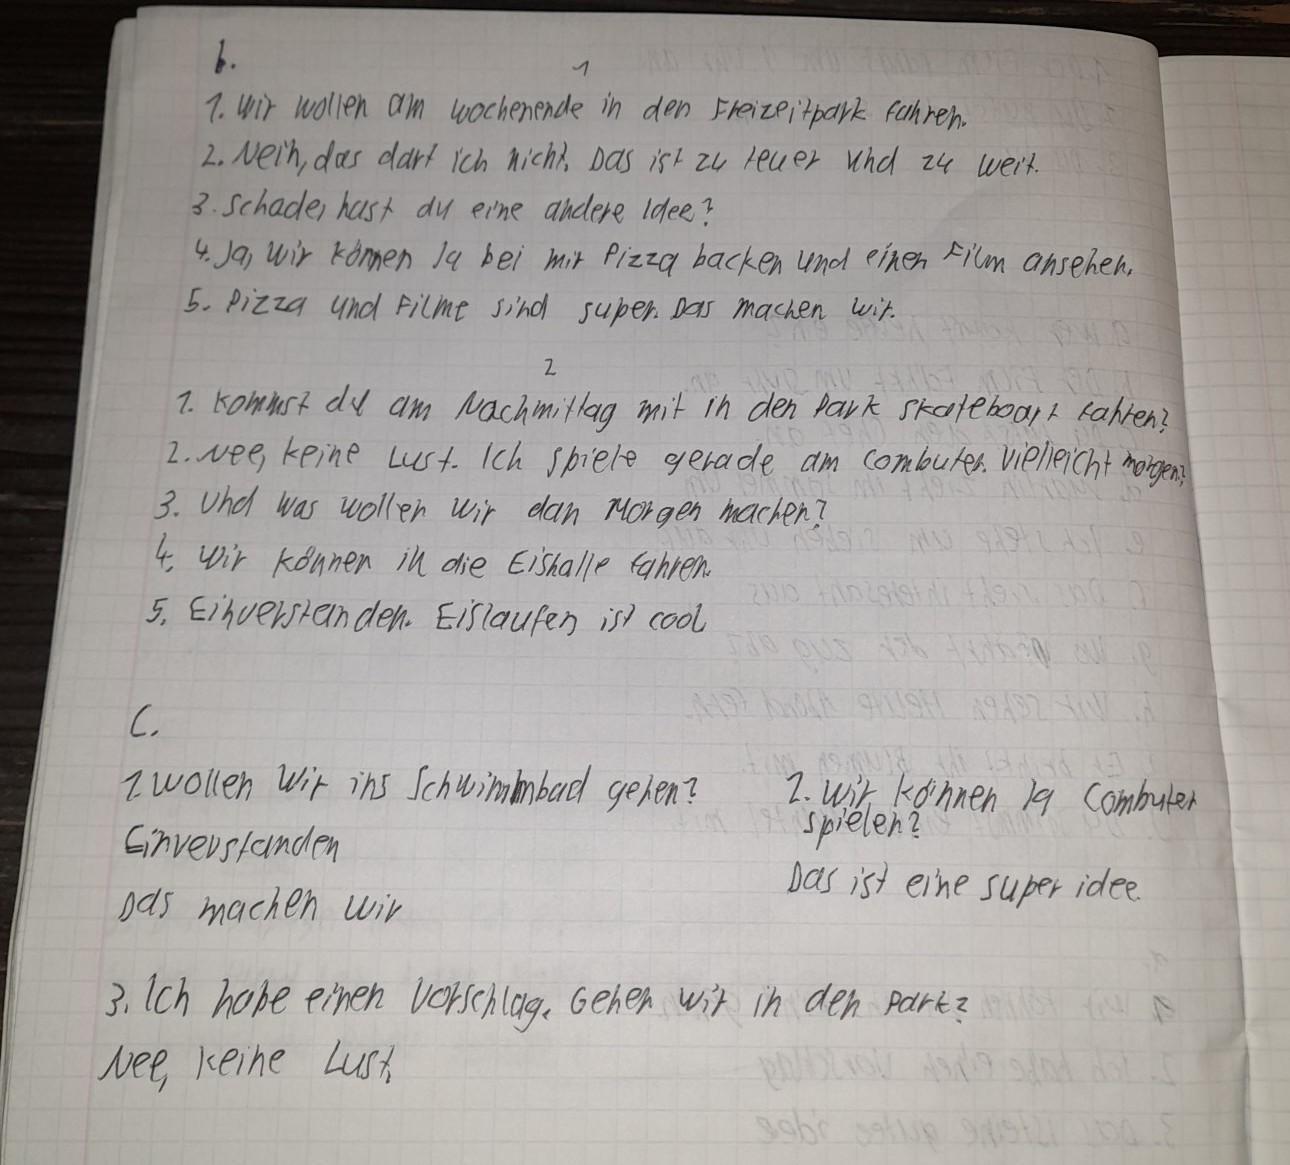 b.
1
1. Wir wollen am wochenende in den Freizeitpark fahren.
2. Nein, das darf ich nicht. Das ist zu teuer und zu weit.
3. Schade, hast du eine andere Idee?
4. Ja, Wir können Ja bei mir Pizza backen und einen Film ansehen.
5. Pizza und Filme sind super. Das machen wir.
2
1. Kommst du am Nachmittag mit in den Park skateboart fahren?
2. Nee, keine Lust. Ich spiele gerade am Combuter. Vielleicht morgen?
3. Und was wollen wir dan Morgen machen?
4. Wir können in die Eishalle fahren.
5. Einverstanden. Eislaufen ist cool
C.
1 Wollen Wir ins Schwimmbad gehen?
Einverstanden
Das machen wir
2. Wir können Ja Combuter
spielen?
Das ist eine super idee.
3. Ich habe einen Vorschlag. Gehen wir in den Park?
Nee, keine Lust.